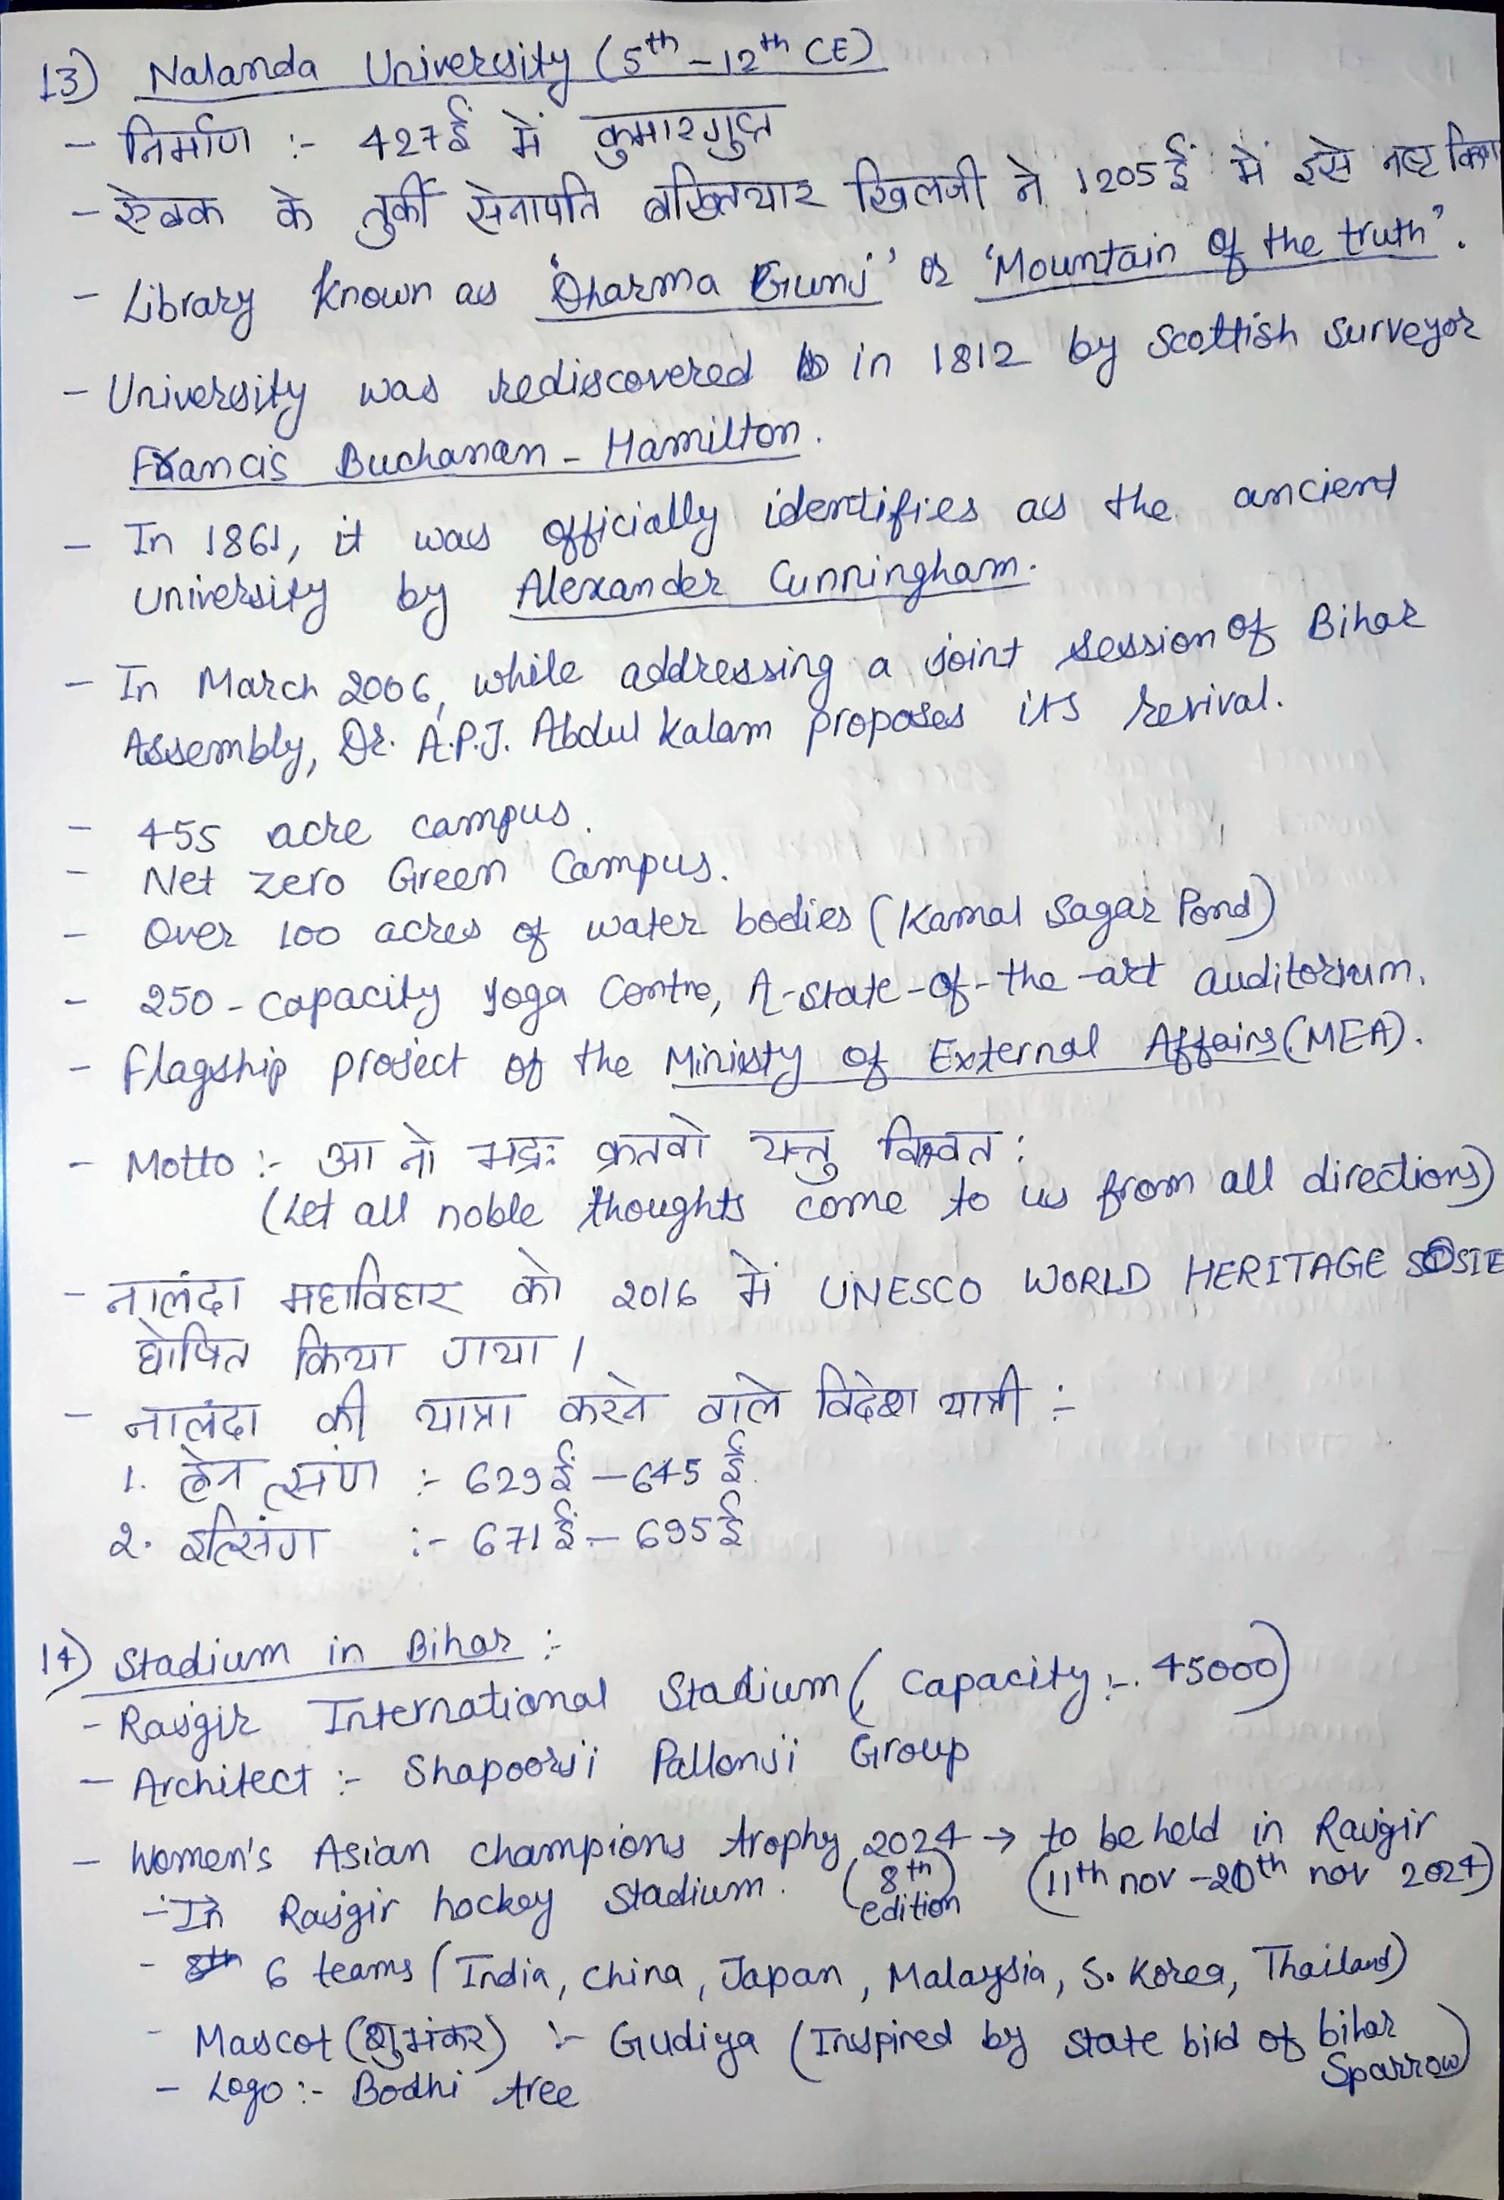 13) Nalanda University (5th – 12th CE)
- निर्माण :- 427ई में कुमारगुप्त
- ऐबक के तुर्की सेनापति बख्तियार खिलजी ने 1205ई में इसे नष्ट किया
- Library known as 'Dharma Gunj' or 'Mountain of the truth'.
- University was rediscovered in 1812 by Scottish surveyor
Francis Buchanan - Hamilton.
- In 1861, it was officially identifies as the ancient
university by Alexander Cunningham.
- In March 2006, while addressing a joint session of Bihar
Assembly, Dr. A.P.J. Abdul Kalam proposes its revival.
- 455 acre campus.
- Net zero Green Campus.
- Over 100 acres of water bodies (Kamal Sagar Pond)
- 250 - capacity Yoga Centre, A-state-of-the-art auditorium.
- Flagship project of the Ministy of External Affairs (MEA).
- Motto :- आ नो भद्रः क्रतवो यन्तु विश्वत :
(Let all noble thoughts come to us from all directions)
- नालंदा महाविहार को 2016 में UNESCO WORLD HERITAGE SITE
घोषित किया गया ।
- नालंदा की यात्रा करने वाले विदेश यात्री :-
1. ह्वेन त्सांग :- 629ई – 645 ई.
2. इत्सिंग :- 671ई – 695ई
14) Stadium in Bihar :-
- Rajgir International Stadium ( Capacity :- 45000)
- Architect :- Shapoorji Pallonji Group
- Women's Asian champions trophy 2024 → to be held in Rajgir
(8th edition) (11th nov – 20th nov 2024)
- In Rajgir hockey Stadium.
- 6 teams (India, China, Japan, Malaysia, S. Korea, Thailand)
- Mascot (शुभंकर) :- Gudiya (Inspired by state bird of bihar Sparrow)
- Logo :- Bodhi tree